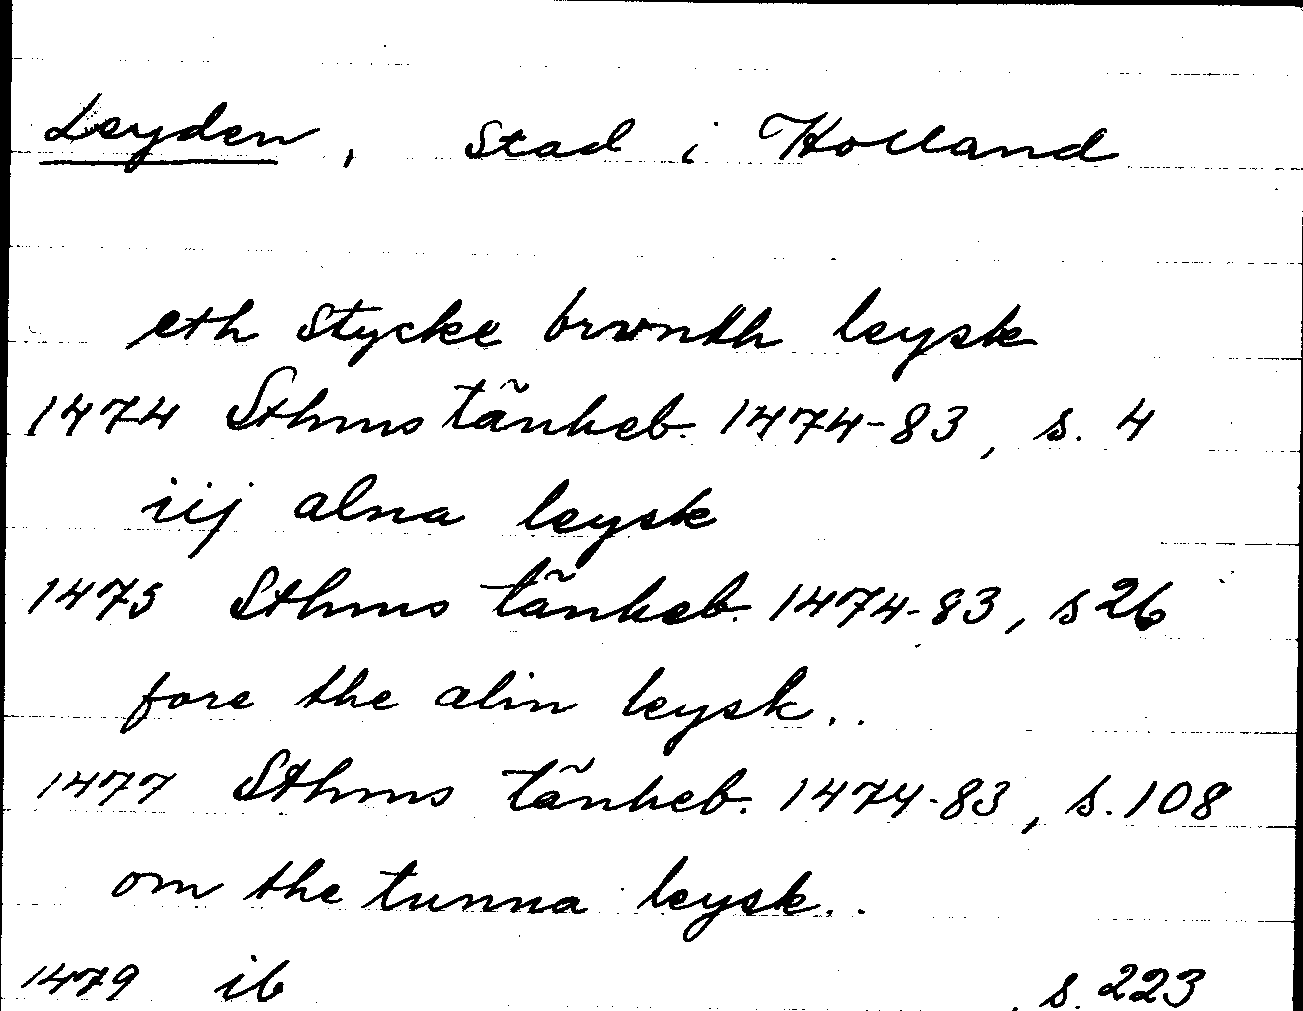 Leyden, Stad i Holland
eth stycke brwnth leysk
1474 Sthms tänkeb. 1474-83, s. 4
iij alna leysk
1475 Sthms tänkeb. 1474-83, s 26
fore the alin leysk..
1477 Sthms tänkeb. 1474-83, s. 108
om the tunna leysk..
1479 ib , s. 223